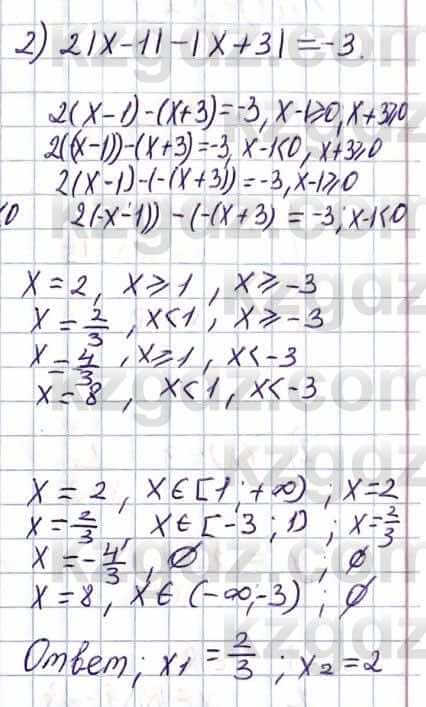 2) 2|x-1|-|x+3|=-3.
2(x-1)-(x+3)=-3, x-1≥0, x+3≥0
2((x-1))-(x+3)=-3, x-1<0, x+3≥0
2(x-1)-(-(x+3))=-3, x-1≥0
<0 2(-x-1))-(-(x+3)=-3; x-1<0
x=2, x≥1, x≥-3
x=2/3, x<1, x≥-3
x=4/3, x≥1, x<-3
x=8, x<1, x<-3
x=2, x∈[1;+∞); x=2
x=2/3, x∈[-3;1); x=2/3
x=-4/3, ∅; ∅
x=8, x∈(-∞;-3); ∅
Ответ; x1=2/3; x2=2
kzgdz.com